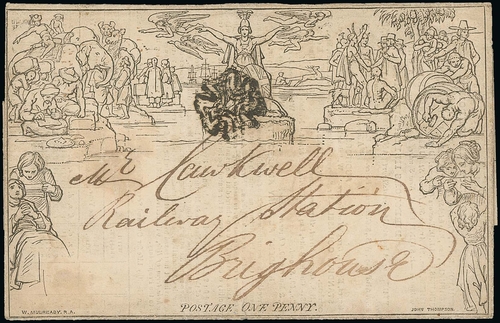 Mr Cawkwell
Railway Station
Brighouse
POSTAGE ONE PENNY.
W. MULREADY, R.A.
JOHN THOMPSON